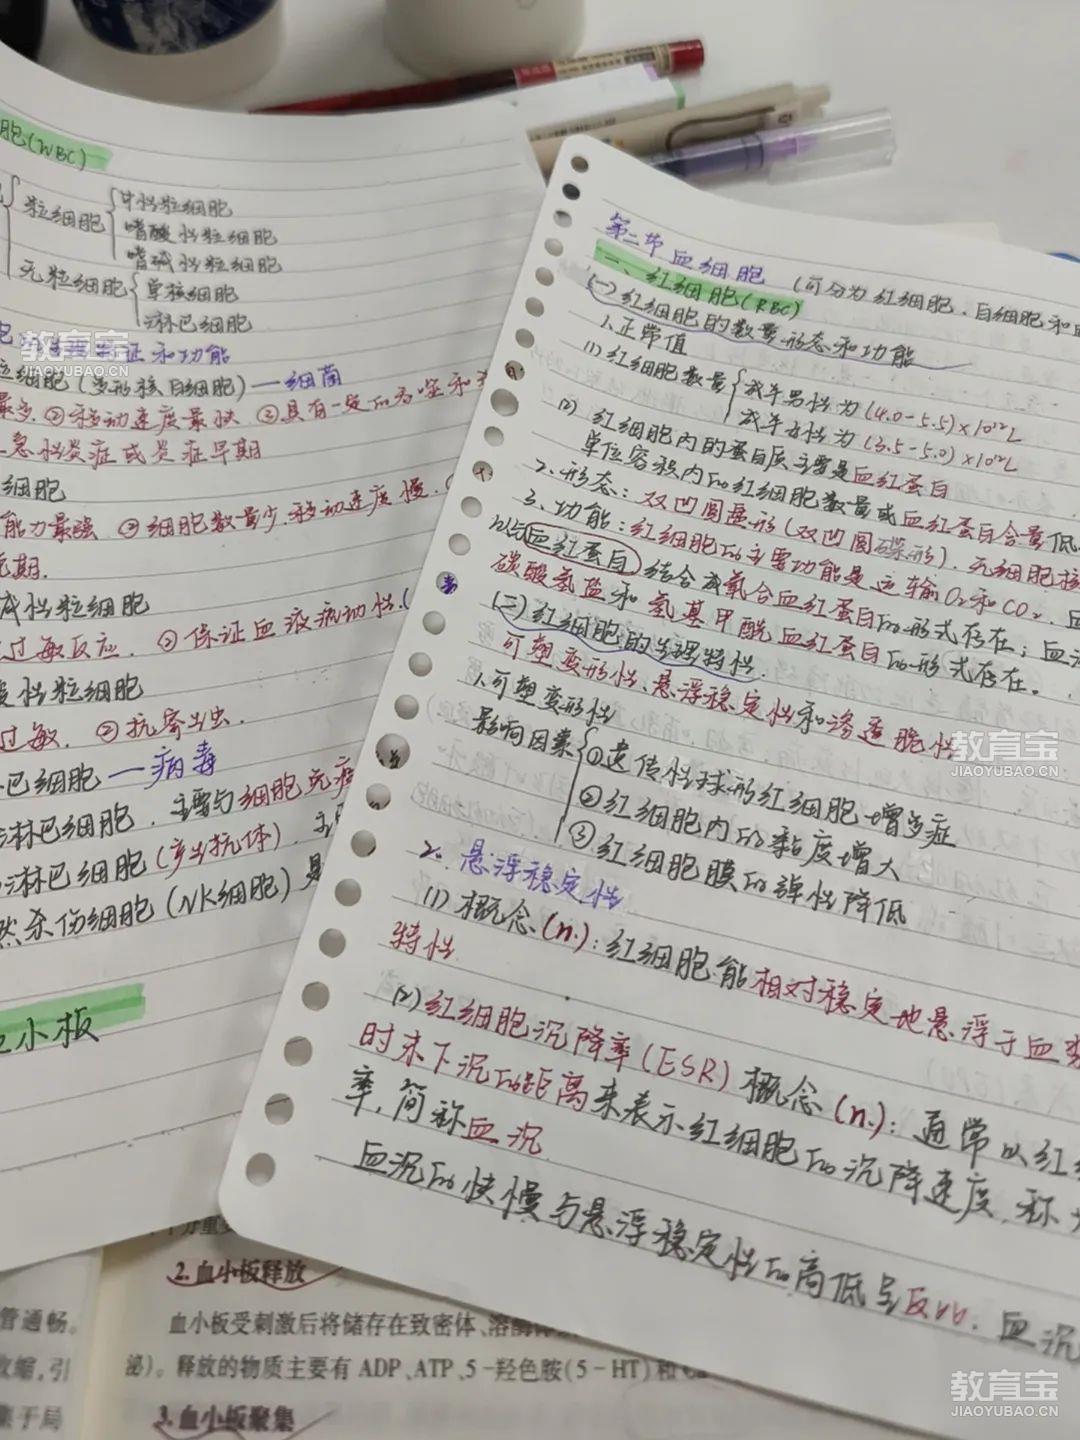 胞(WBC)
粒细胞
中性粒细胞
嗜酸性粒细胞
嗜碱性粒细胞
无粒细胞
单核细胞
淋巴细胞
和功能
粒细胞(变形核白细胞)—细菌
最多.②移动速度最快 ③具有一定的吞噬和
急性炎症或炎症早期
细胞
能力最强 ②细胞数量少.移动速度慢.
期.
碱性粒细胞
过敏反应. ②保证血液流动性.(
酸性粒细胞
过敏. ②抗寄生虫.
巴细胞—病毒
淋巴细胞. 主要与细胞免疫
淋巴细胞(产生抗体).
然杀伤细胞(NK细胞)是
小板
第二节 血细胞 (可分为红细胞、白细胞和血
一、红细胞(RBC)
(一)红细胞的数量、形态和功能
1.正常值
(1)红细胞数量
成年男性为(4.0-5.5)×10¹²L
成年女性为(3.5-5.0)×10¹²L
(2)红细胞内的蛋白质主要是血红蛋白
单位容积内的红细胞数量或血红蛋白含量低
2.形态:双凹圆盘形(双凹圆碟形).无细胞核
3.功能:红细胞的主要功能是运输O₂和CO₂.
以与血红蛋白结合成氧合血红蛋白的形式存在;
碳酸氢盐和氨基甲酰血红蛋白的形式存在。
(二)红细胞的生理特性.
可塑变形性、悬浮稳定性和渗透脆性
1.可塑变形性
影响因素
①遗传性球形红细胞增多症
②红细胞内的黏度增大
③红细胞膜的弹性降低
2.悬浮稳定性
(1)概念(n.):红细胞能相对稳定地悬浮于血浆
特性
(2)红细胞沉降率(ESR)概念(n.):通常以红
时末下沉的距离来表示红细胞的沉降速度,称
率,简称血沉
血沉的快慢与悬浮稳定性的高低呈反比.血沉
2.血小板释放
管通畅。
血小板受刺激后将储存在致密体、
收缩,引
泌)。释放的物质主要有 ADP、ATP、5-羟色胺(5-HT)和
集于局
3.血小板聚集
教育宝
JIAOYUBAO.CN
教育宝
JIAOYUBAO.CN
教育宝
JIAOYUBAO.CN